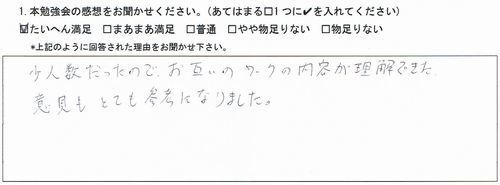 1. 本勉強会の感想をお聞かせください。（あてはまる□1つに✔を入れてください）
☑たいへん満足　□まあまあ満足　□普通　□やや物足りない　□物足りない
*上記のように回答された理由をお聞かせ下さい。
少人数だったので、お互いのワークの内容が理解できた.
意見もとても参考になりました。